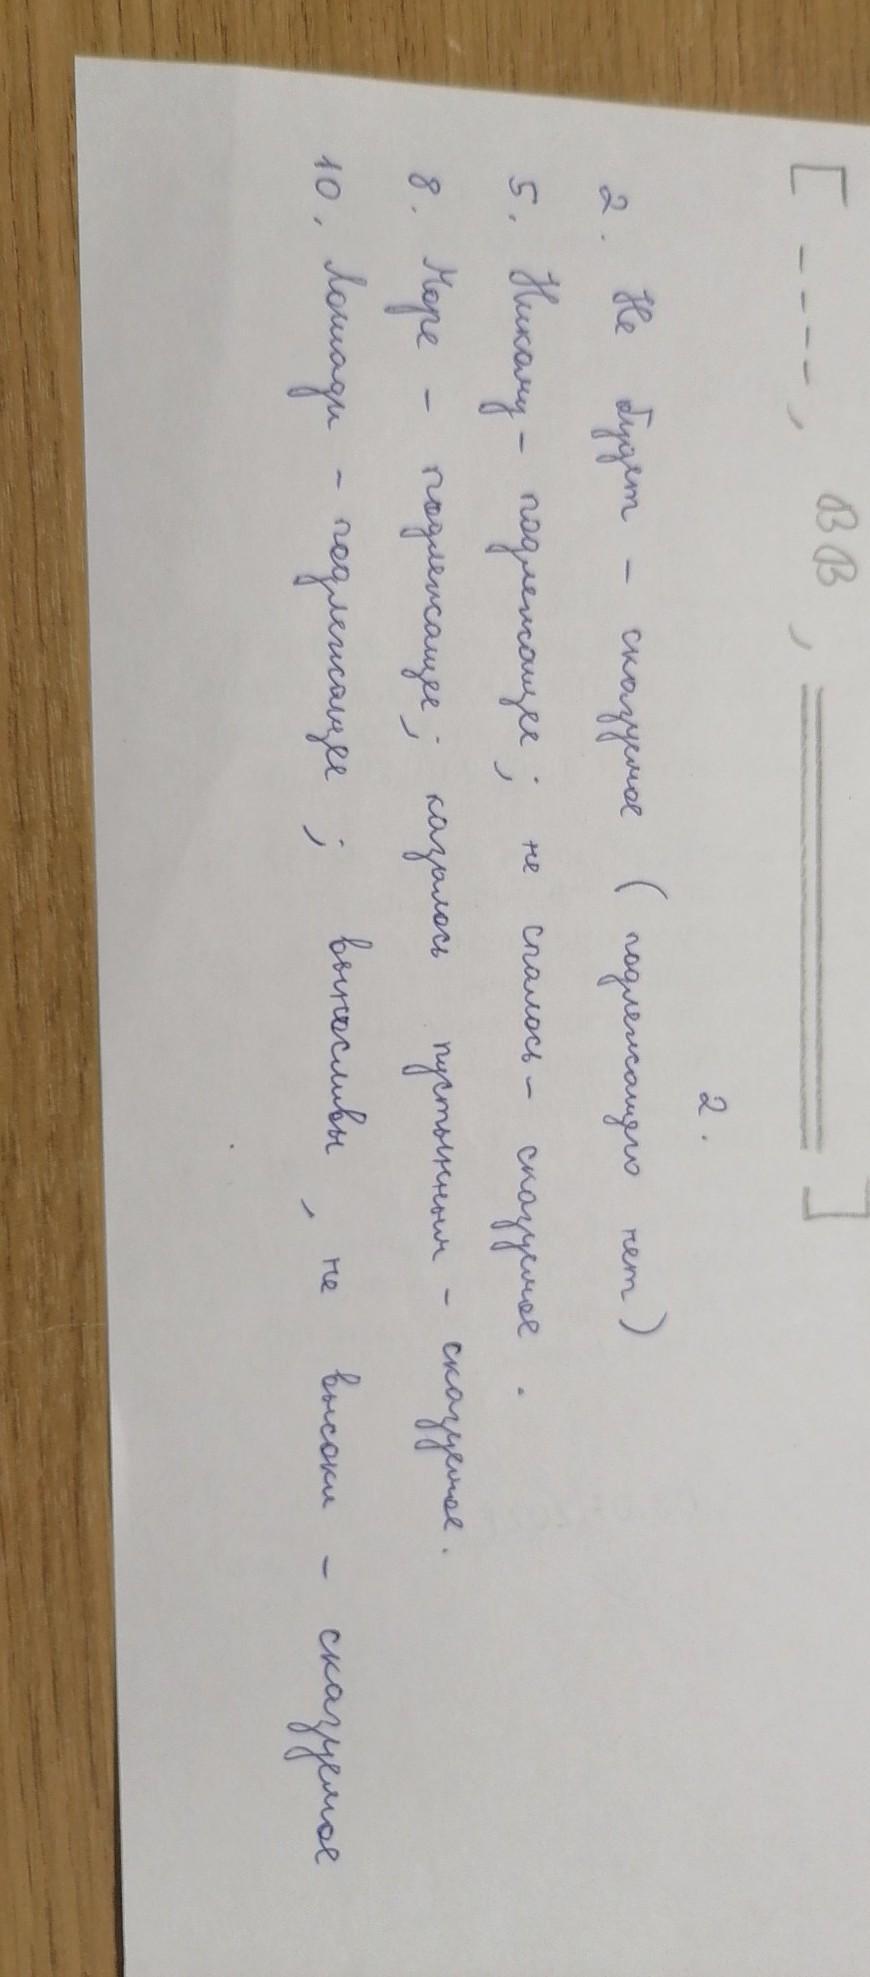 [ - - - - , ВВ , ]
2.
2. Не будет - сказуемое (подлежащего нет)
5. Никому - подлежащее; не спалось - сказуемое.
8. Море - подлежащее; казалось пустынным - сказуемое.
10. Лошади - подлежащее; выносливы, не высоки - сказуемое